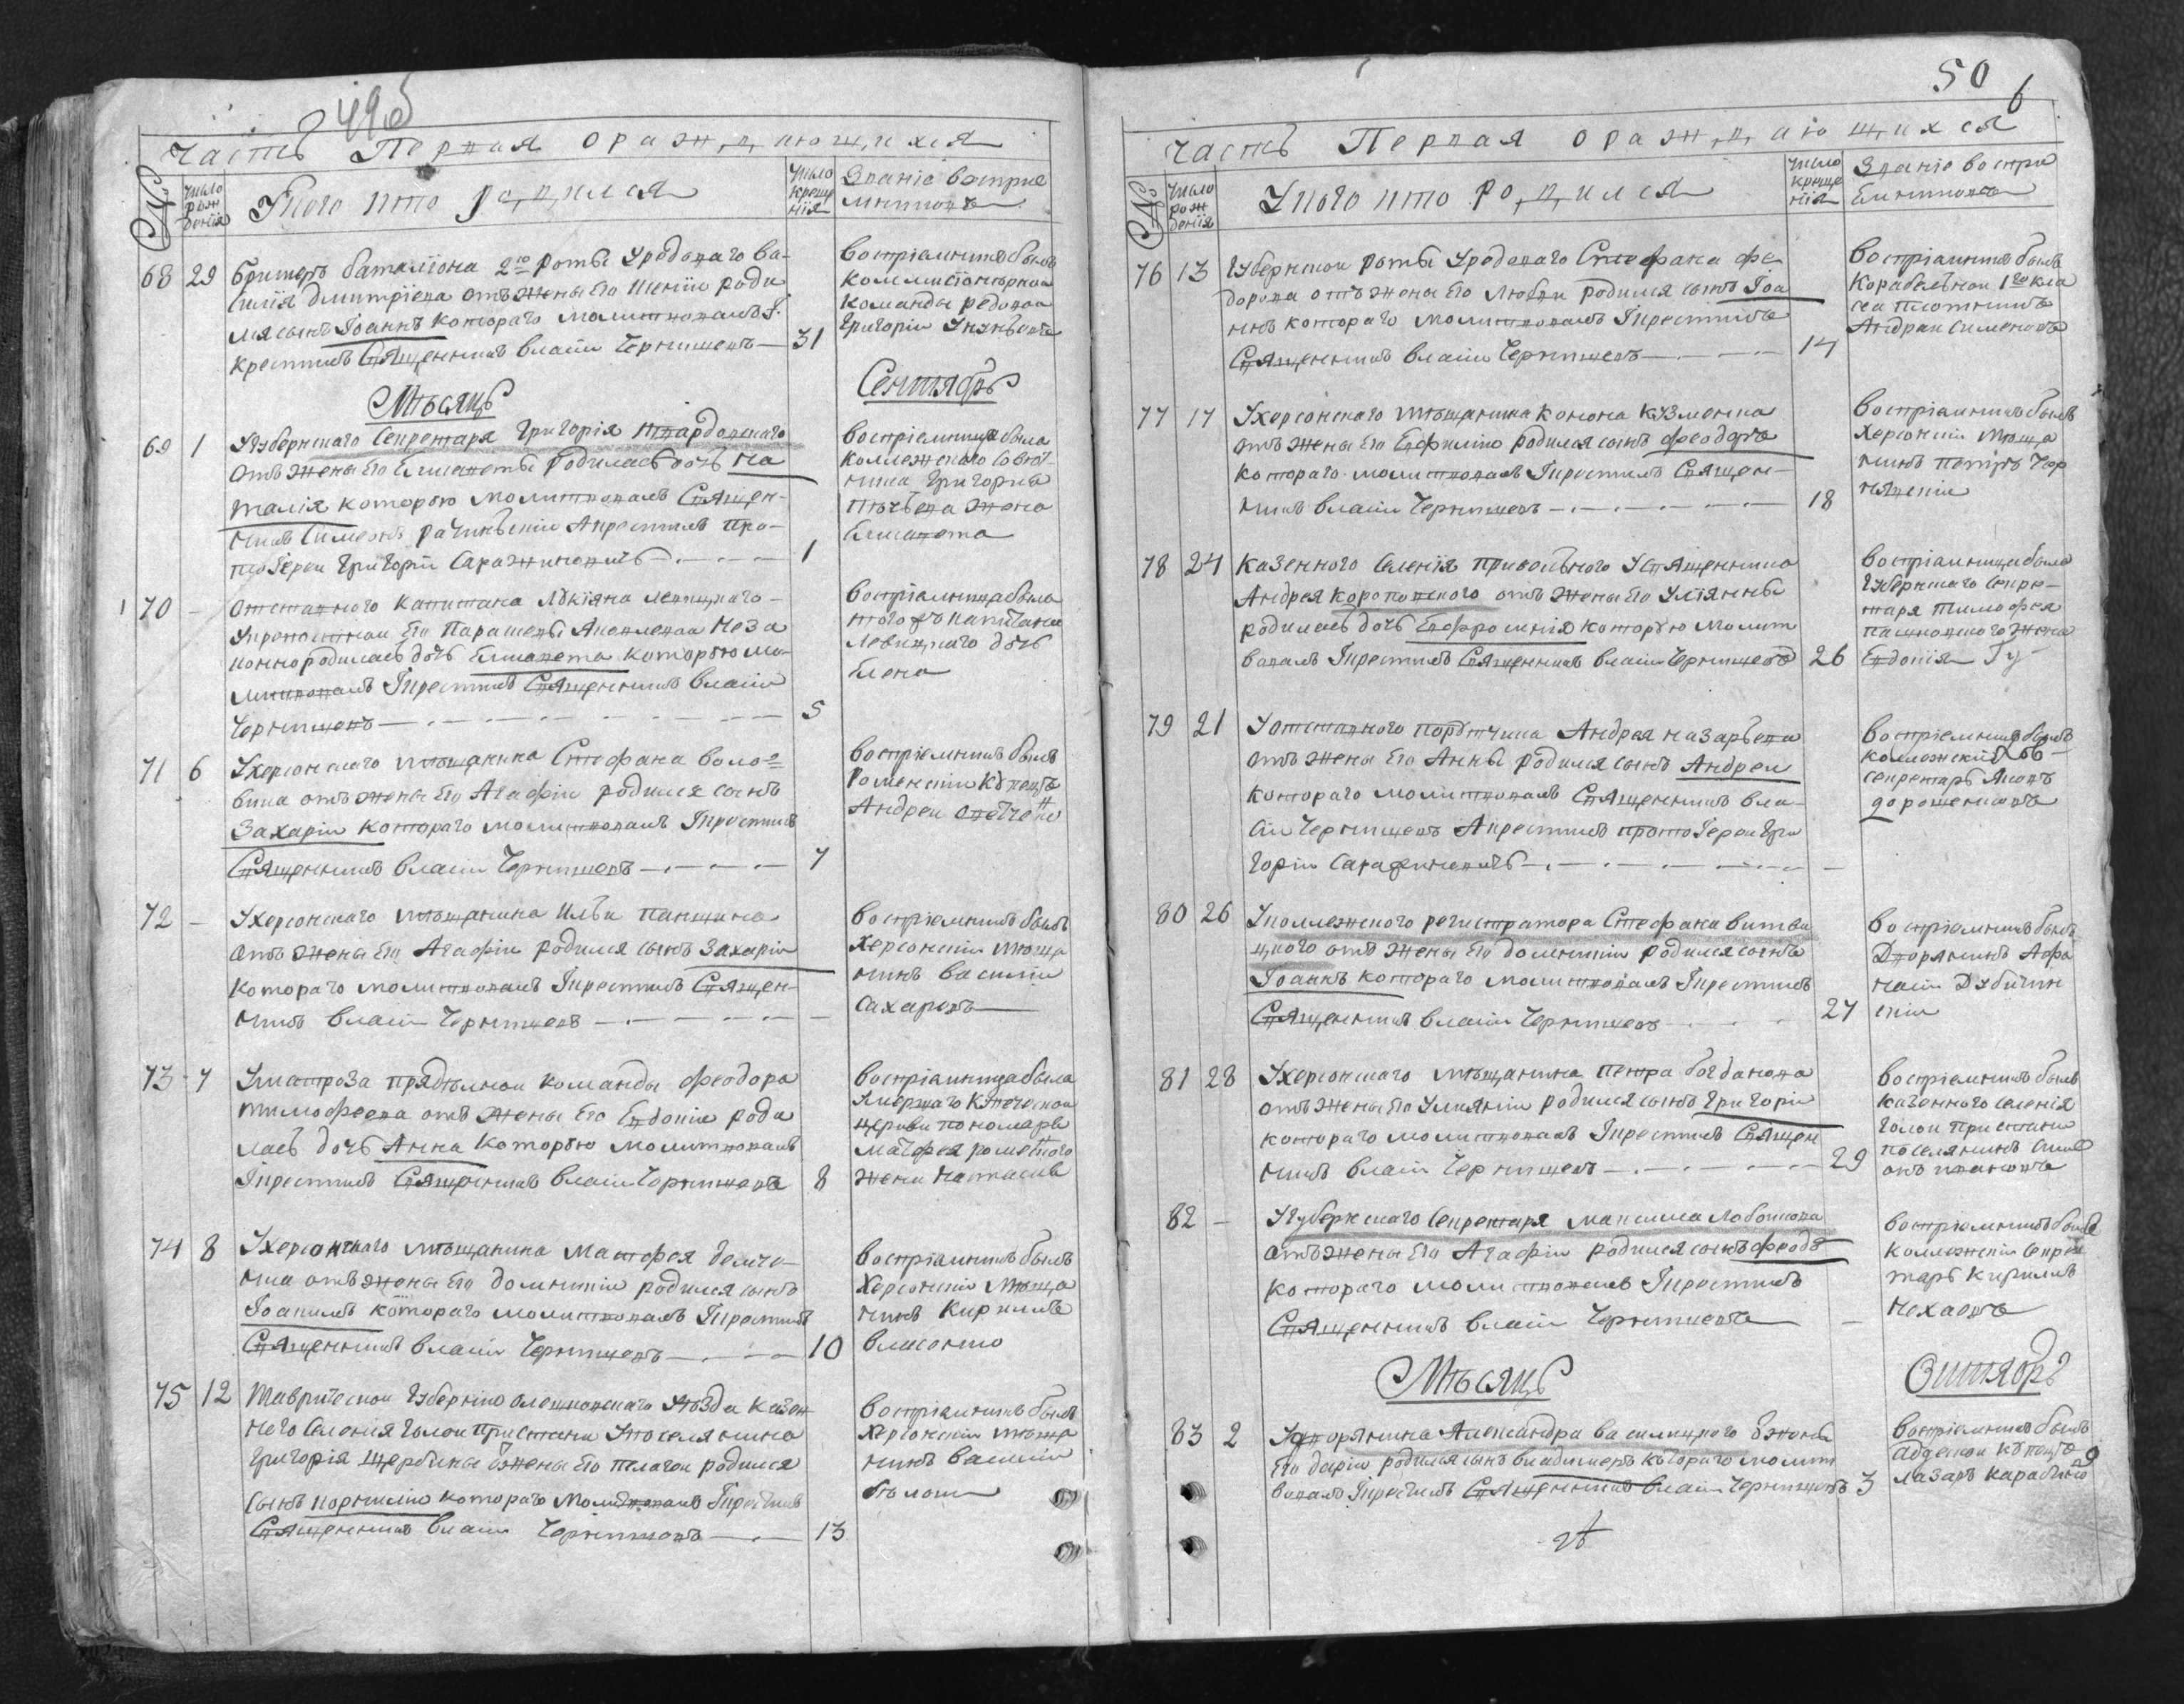 49об
Часть Первая о раждающихся
№
Число рождения
У кого кто родился
Число крещения
Звание восприемников
68 29 Бригеръ баталіона 2го роты У редоваго Ва-
силія Дмитріева отъ жены Его Ксеніи роди
лся сынъ Іоаннъ котораго молитвовалъ І
крестилъ Священникъ Власій Чернышевъ 31
Воспріемникъ былъ
коммисіонерной
команды редовой
Григорій
Мѣсяцъ
Сентябрь
69 1 У Губернскаго Секретаря Григорія Твардовскаго
отъ жены Его Елисаветы родилась дочь На
талія которую молитвовалъ Священ-
никъ Симеонъ Рачинскій А крестилъ про-
тоІерей Григорій Саражиновичъ 1
Воспріемница была
Коллежскаго Совѣт-
ника Григорія
жена
Елисавета
70 - Отставного Капитана Лукіяна Левицкаго
У крепостной Его Параскевы Яковлевой Неза
конно родилась дочь Елисавета которую мо-
литвовалъ І крестилъ Священникъ Власій
Чернышевъ 5
Воспріемница была
того жъ капитана
Левицкаго дочь
Елена
71 6 У херсонскаго мѣщанина Стефана Воло
вика отъ жены Его Агафіи родился сынъ
Захарій котораго молитвовалъ І крестилъ
Священникъ Власій Чернышевъ 7
Воспріемникъ былъ
Роменскій Купецъ
Андрей
72 - У херсонскаго мѣщанина Ильи Панщина
отъ жены Его Агафіи родился сынъ Захарій
котораго молитвовалъ І крестилъ Священ-
никъ Власій Чернышевъ -
Воспріемникъ былъ
Херсонскій мѣща
нинъ Василій
Сахаровъ
73 7 У матроза прядильной команды Феодора
Тимофеева отъ жены Его Евдокіи роди
лась дочь Анна которую молитвовалъ
І крестилъ Священникъ Власій Чернышевъ 8
Воспріемница была
Купеческой
церкви пономаря
Матфея
жена Наталія
74 8 У херсонскаго мѣщанина Матфея Демче-
нка отъ жены Его Домникіи родился сынъ
Іоакимъ котораго молитвовалъ І крестилъ
Священникъ Власій Чернышевъ 10
Воспріемникъ былъ
Херсонскій мѣща
нинъ Кирилъ
Власенко
75 12 Таврической Губерніи Олешковскаго Уѣзда Казен
наго Селенія Голой Пристани У поселянина
Григорія Щербины отъ жены Его Пелагеи родился
сынъ Корнилій котораго молитвовалъ І крестилъ
Священникъ Власій Чернышевъ 13
Воспріемникъ былъ
Херсонскій мѣща
нинъ Василій
Бѣлой
50
6
Часть Первая о раждающихся
№
Число рождения
У кого кто родился
Число крещения
Званіе воспри
емников
76 13 Губернской роты У редоваго Стефана Фе
дорова отъ жены Его Любви родился сынъ Іоа
ннъ котораго молитвовалъ І крестилъ
Священникъ Власій Чернышевъ 14
Воспріемникъ былъ
Корабельной 1го кла
са плотникъ
Андрей Симеоновъ
77 17 У херсонскаго мѣщанина Конона Кузменка
отъ жены Его Евфиміи родился сынъ Феодоръ
котораго молитвовалъ І крестилъ Священ-
никъ Власій Чернышевъ 18
Воспріемникъ былъ
Херсонскій мѣща
нинъ Петръ Чер
нявскій
78 24 Казенного Селенія Привольного У Священника
Андрея Короповского отъ жены Его Уліянны
родилась дочь Евфросинія которую молит
вовалъ І крестилъ Священникъ Власій Чернышевъ 26
Воспріемница была
Губернскаго Секре-
таря Тимофея
жена
Евдокія
79 21 У отставного порутчика Андрея Назарьева
отъ жены Его Анны родился сынъ Андрей
котораго молитвовалъ Священникъ Вла-
сій Чернышевъ А крестилъ протоІерей Гри
горій Саражиновичъ -
Воспріемникъ былъ
Коллежскій
секретарь Яковъ
Дорошенковъ
80 26 У коллежского регистратора Стефана Витви
цкого отъ жены Его Домникіи родился сынъ
Іоаннъ котораго молитвовалъ І крестилъ
Священникъ Власій Чернышевъ 27
Воспріемникъ былъ
Дворянинъ Афа
насій Дубичин
скій
81 28 У херсонскаго мѣщанина Петра Богданова
отъ жены Его Уліяніи родился сынъ Григорій
котораго молитвовалъ І крестилъ Священ
никъ Власій Чернышевъ 29
Воспріемникъ былъ
казенного селенія
Голой Пристани
поселянинъ Симе
онъ Ивановъ
82 - У Губернскаго Секретаря Максима Лобочкова
отъ жены Его Агафіи родился сынъ Феодо
котораго молитвовалъ І крестилъ
Священникъ Власій Чернышевъ -
Воспріемникъ былъ
Коллежскій Секре
тарь Кирилъ
Нехаевъ
Мѣсяцъ
Октябрь
83 2 У дворянина Александра Василицкого отъ жены
Его Даріи родился сынъ Владимеръ котораго молит
вовалъ І крестилъ Священникъ Власій Чернышевъ 3
Воспріемникъ былъ
Одескои Купецъ
Лазарь